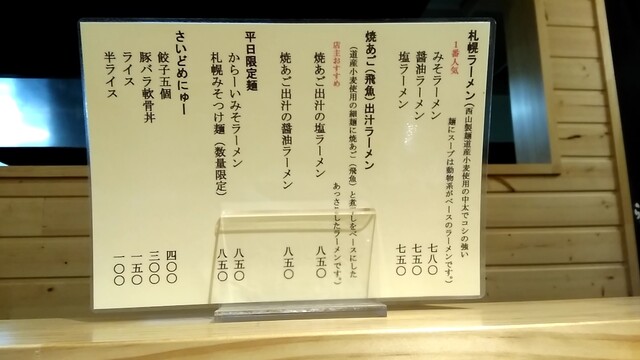 札幌ラーメン(西山製麺道産小麦使用の中太でコシの強い
麺にスープは動物系がベースのラーメンです。)
1番人気
みそラーメン 七八〇
醤油ラーメン 七五〇
塩ラーメン 七五〇
焼あご(飛魚)出汁ラーメン
(道産小麦使用の細麺に焼あご(飛魚)と煮干しをベースにした
あっさりしたラーメンです。)
店主おすすめ
焼あご出汁の塩ラーメン 八五〇
焼あご出汁の醤油ラーメン 八五〇
平日限定麺
からーいみそラーメン 八五〇
札幌みそつけ麺(数量限定) 八五〇
さいどめにゅー
餃子五個 四〇〇
豚バラ軟骨丼 三〇〇
ライス 一五〇
半ライス 一〇〇